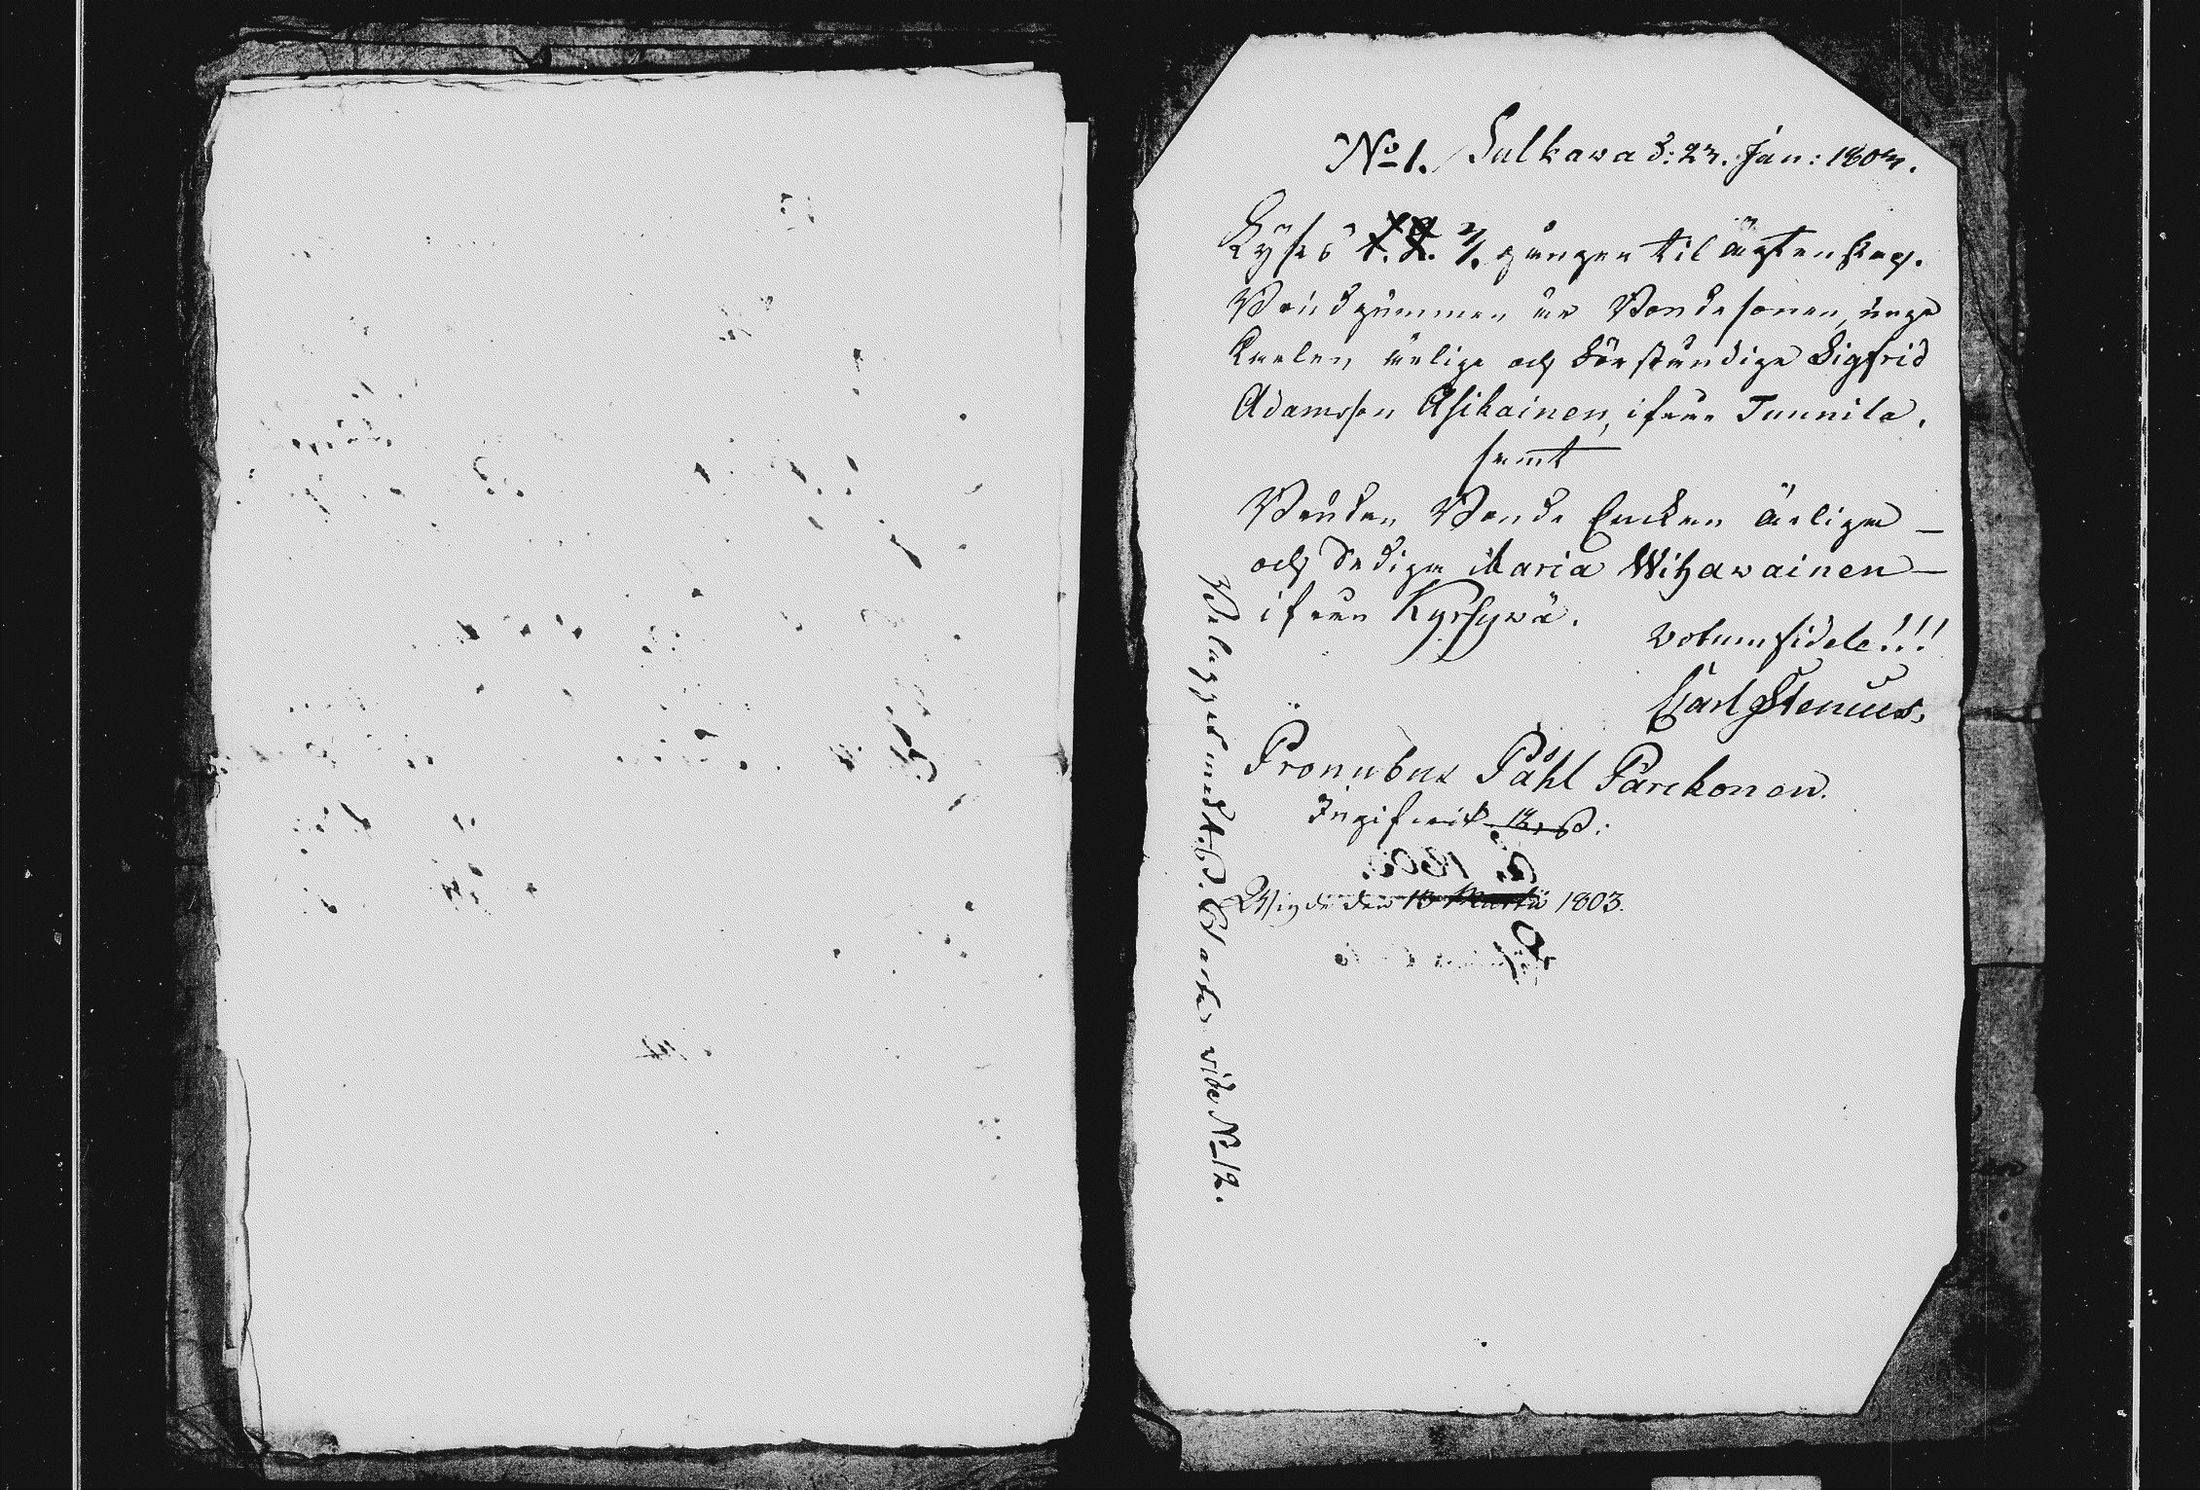 No 1. Sulkawa d: 23. Jan: 1803.
Lyses 1. 2. 3/. gången til ägtenskap.
Brüdgummen är Bondesonen, unge
Karlen, ärlige och förståndige Sigfrid
Adamsson Asikainen, ifrån Tunnila.
samt
Bruden Bonde Enckan ärliga
och dediga Maria Wihawainen
ifrån Kyrsywä.
votum fidele!!!
Carl Stenius.
Pronubus Påhl Parckonen.
Wigde den 13 Martii 1803.
Belägges med A. b. d. Charta vide No 12.